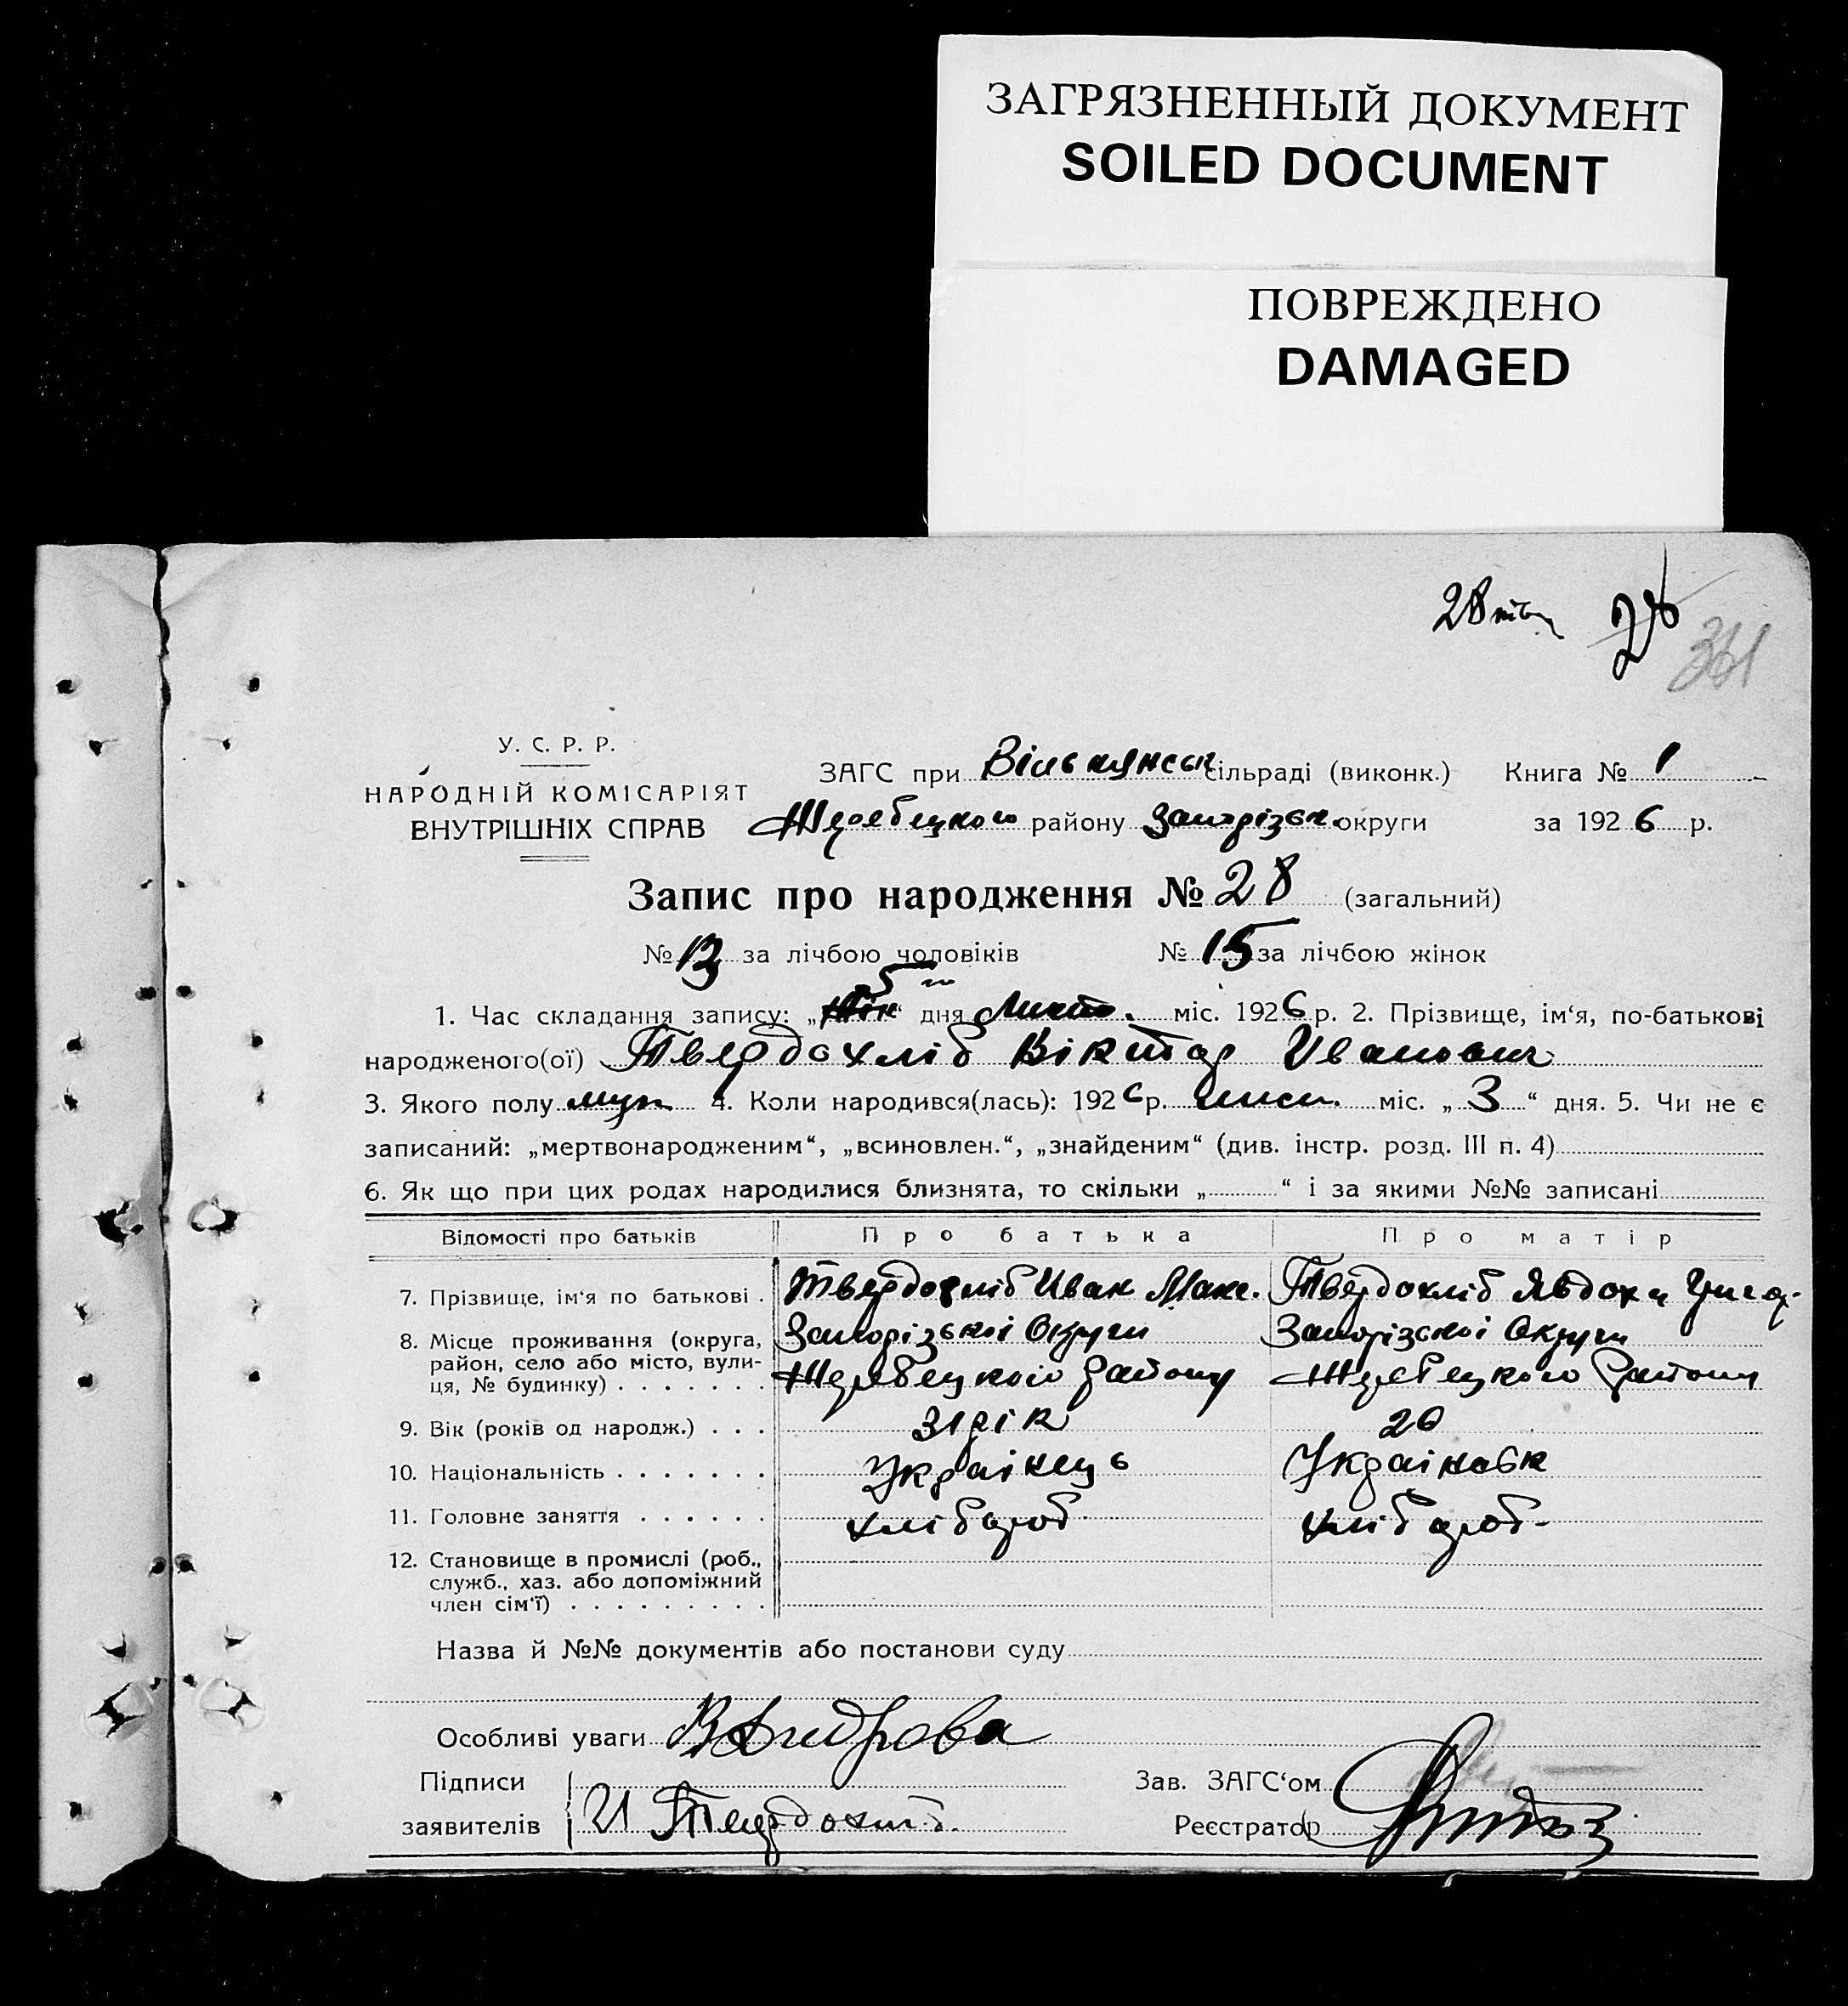 ЗАГРЯЗНЕННЫЙ ДОКУМЕНТ
SOILED DOCUMENT
ПОВРЕЖДЕНО
DAMAGED
28
У. С. Р. Р.
НАРОДНІЙ КОМІСАРІЯТ
ВНУТРІШНІХ СПРАВ
ЗАГС при сільраді (виконк.) Книга № 1
Жеребецкого району Запорізьк. округи за 1926 р.
Запис про народження № 28 (загальний)
№ 13 за лічбою чоловіків № 15 за лічбою жінок
1. Час складання запису: „ 5 “ дня міс. 1926 р. 2. Прізвище, ім‘я, по-батькові
народженого(ої) Твердохліб Віктор Иванович
3. Якого полу муж 4. Коли народився(лась): 1926 р. міс. „ 3 “ дня. 5. Чи не є
записаний: „мертвонародженим“, „всиновлен.“, „знайденим“ (див. інстр. розд. III п. 4)
6. Як що при цих родах народилися близнята, то скільки „ “ і за якими №№ записані
Відомості про батьків Про батька Про матір
7. Прізвище, ім‘я по батькові . Твердохліб Иван Макс. Твердохліб Явдоха
8. Місце проживання (округа, Запорізькоі Округи Запорізскоі Округи
район, село або місто, вули-
ця, № будинку) . . . . . . . Жеребецкого Району Жеребецкого Району
9. Вік (років од народж.) . . . 31 рік 20
10. Національність . . . . . . . Украінець Украінськ
11. Головне заняття . . . . . . хлібороб. хлібороб.
12. Становище в промислі (роб.,
служб., хаз. або допоміжний
член сім‘ї) . . . . . . . . .
Назва й №№ документів або постанови суду
Особливі уваги
Підписи
заявителів И Твердохліб.
Зав. ЗАГС‘ом
Реєстратор